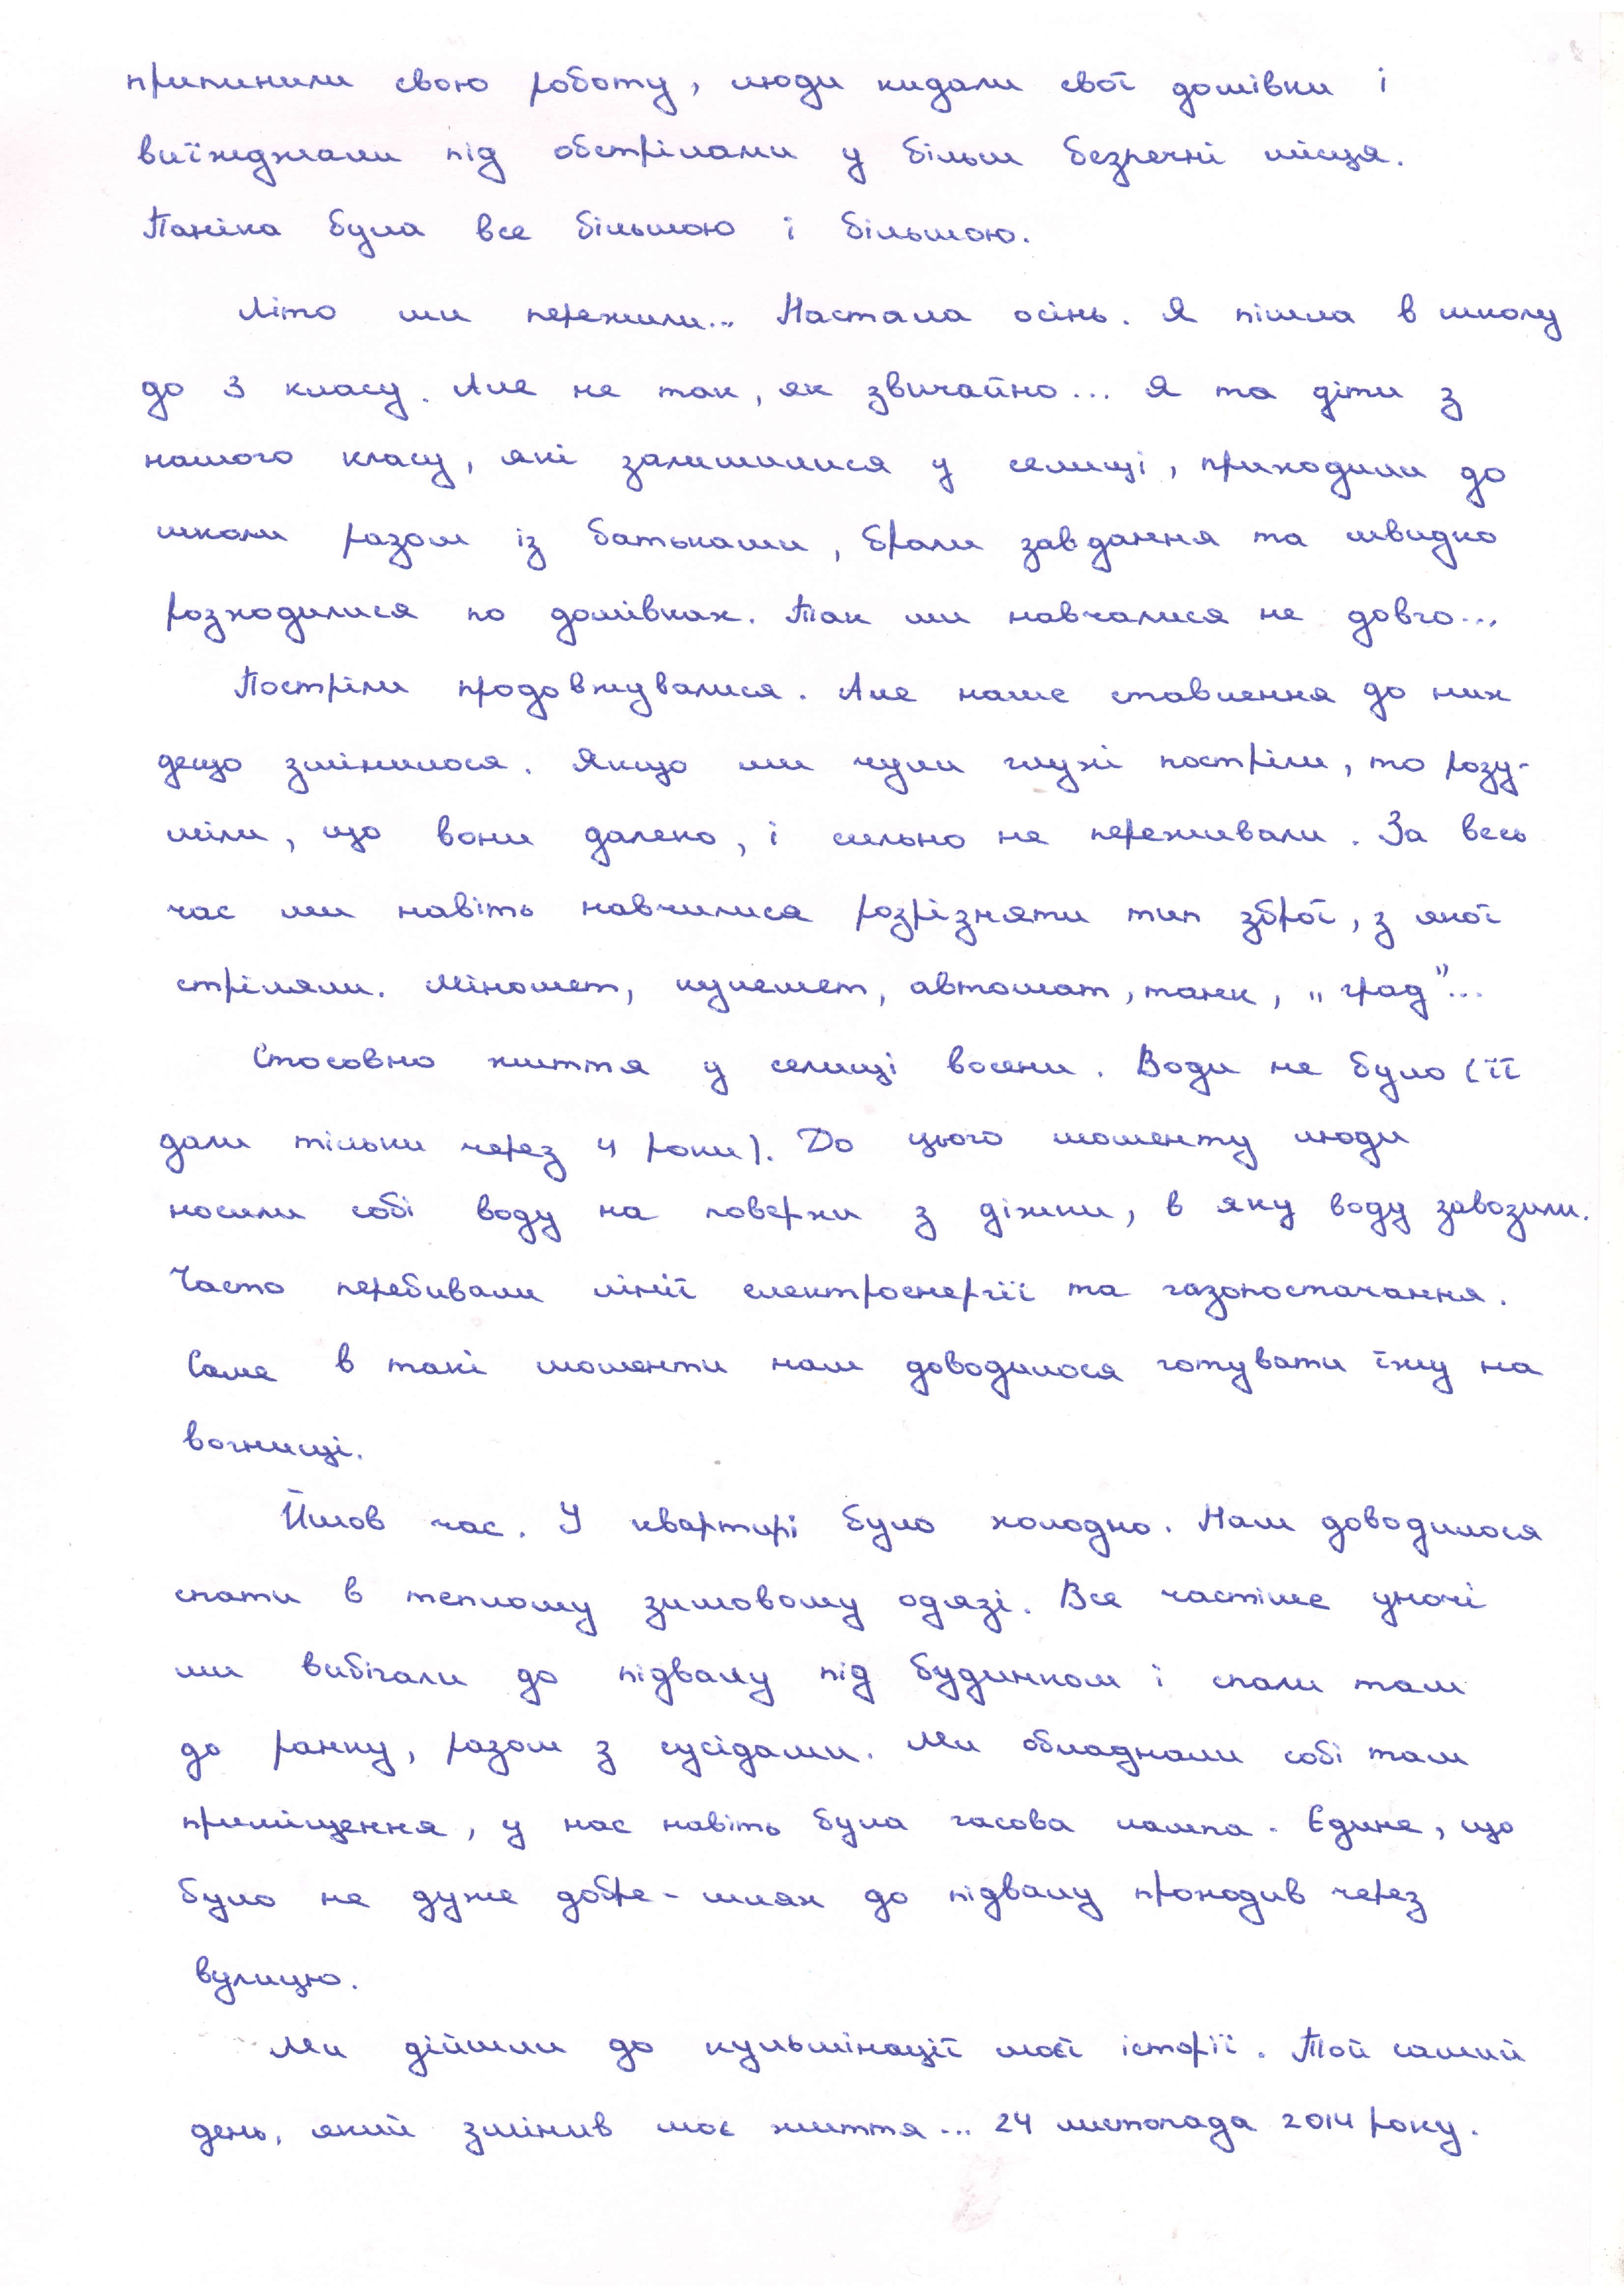 припинили свою роботу, люди кидали свої домівки і
виїжджали під обстрілами у більш безпечні місця.
Паніка була все більшою і більшою.
Літо ми пережили... Настала осінь. Я пішла в школу
до 3 класу. Але не так, як звичайно... Я та діти з
нашого класу, які залишилися у селищі, приходили до
школи разом із батьками, брали завдання та швидко
розходилися по домівках. Так ми навчалися не довго...
Постріли продовжувалися. Але наше ставлення до них
дещо змінилося. Якщо ми чули глухі постріли, то розу-
міли, що вони далеко, і сильно не переживали. За весь
час ми навіть навчилися розрізняти тип зброї, з якої
стріляли. Міномет, кулемет, автомат, танк, „град"...
Стосовно життя у селищі восени. Води не було (її
дали тільки через 4 роки). До цього моменту люди
носили собі воду на поверхи з діжки, в яку воду завозили.
Часто перебивали лінії електроенергії та газопостачання.
Саме в такі моменти нам доводилося готувати їжу на
вогнищі.
Йшов час. У квартирі було холодно. Нам доводилося
спати в теплому зимовому одязі. Все частіше уночі
ми вибігали до підвалу під будинком і спали там
до ранку, разом з сусідами. Ми обладнали собі там
приміщення, у нас навіть була гасова лампа. Єдине, що
було не дуже добре - шлях до підвалу проходив через
вулицю.
Ми дійшли до кульмінації моєї історії. Той самий
день, який змінив моє життя... 24 листопада 2014 року.